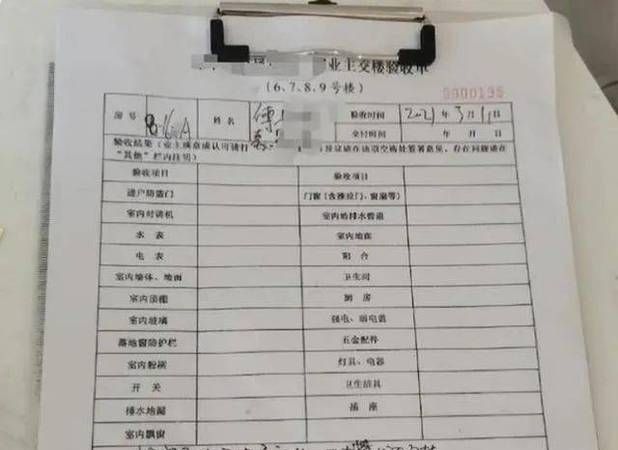 业主交楼验收单
(6、7、8、9号楼)
0000195
房号 姓名 傅 验收时间 2021年3月1日
交付时间 年 月 日
验收结果(业主满意或认可请打
"其他"栏内注明)
验收项目 验收项目
进户防盗门 门窗(含推拉门、窗扇等)
室内对讲机 室内给排水管道
水 表 室内地面
电 表 阳 台
室内墙体、地面 卫生间
室内顶棚 厨 房
室内玻璃 强电、弱电箱
落地窗防护栏 五金配件
室内粉刷 灯具、电器
开 关 卫生洁具
排水地漏 插 座
室内飘窗